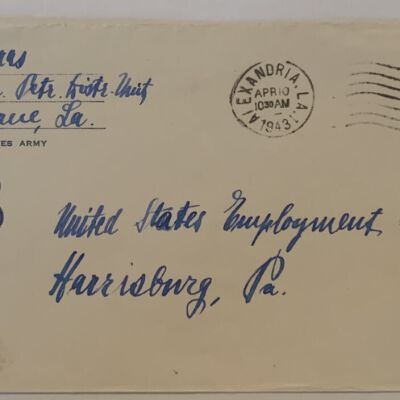 . Petr. Distr. Unit
La.
ES ARMY
ALEXANDRIA, LA.
APR 10
10 30 AM
1943
United States Employment
Harrisburg, Pa.